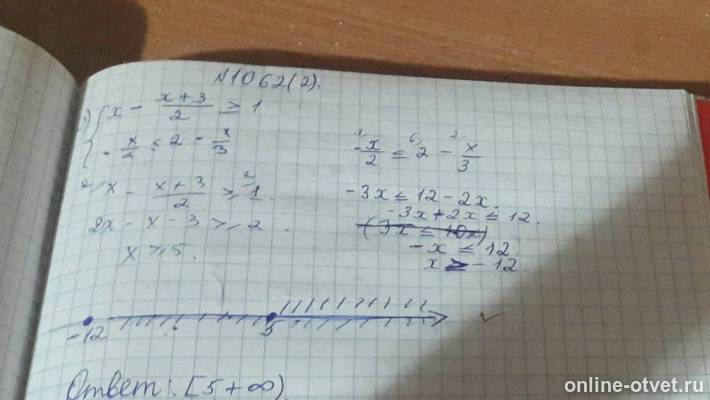 N1062(2).
{ x - (x+3)/2 ≥ 1
- x/2 ≤ 2 - x/3
x - (x+3)/2 ≥ 1
2x - x - 3 ≥ 2
x ≥ 5.
- x/2 ≤ 2 - x/3
-3x ≤ 12 - 2x.
-3x + 2x ≤ 12.
(3x ≤ 10x)
-x ≤ 12.
x ≥ -12.
-12 5
Ответ: [5 +∞)
online-otvet.ru